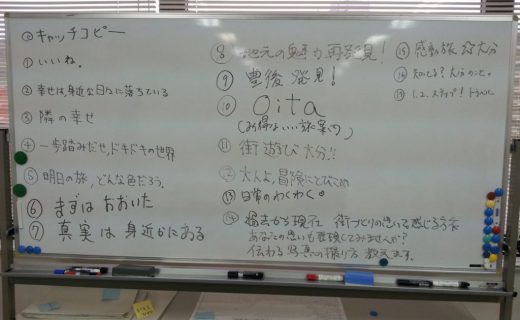 ◎キャッチコピー
① いいね。
② 幸せは身近な日々に落ちている
③ 隣の幸せ
④ 一歩踏みだせ、ドキドキの世界
⑤ 明日の旅、どんな色だろう。
⑥ まずは おおいた
⑦ 真実は身近かにある
⑧ 地元の魅力再発見!
⑨ 豊後発見!
⑩ Oita
(お得ないい旅案内)
⑪ 街遊び大分!!
⑫ 大人よ、冒険にとびこめ
⑬ 日常のわくわく。
⑭ 過去から現在 街づくりの思いを感じる
あなたの思いも登録してみませんか?
伝わる写真の撮り方 教えます。
⑮ 感動旅 ☆大分
⑯ 知ってる? 大分のこと。
1.2.ステップ! トラベル